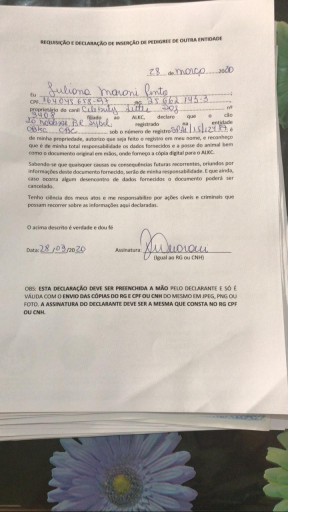 REQUISIÇÃO E DECLARAÇÃO DE INSERÇÃO DE PEDIGREE DE OUTRA ENTIDADE
28 de março 2020
Eu Juliana
CPF RG
proprietário do canil nº
filiado ao ALKC, declaro que o cão
registrado na entidade
sob o número de registro é
de minha propriedade, autorizo que seja feito o registro em meu nome, e reconheço
que é de minha total responsabilidade os dados fornecidos e a posse do animal bem
como o documento original em mãos, onde forneço a cópia digital para o ALKC.
Sabendo-se que quaisquer causas ou consequências futuras ocorridas, oriundos por
informações deste documento fornecido, serão de minha responsabilidade. E que ainda,
caso ocorra algum desencontro de dados fornecidos o documento poderá ser
cancelado.
Tenho ciência dos meus atos e me responsabilizo por ações cíveis e criminais que
possam recorrer sobre as informações aqui declaradas.
O acima descrito é verdade e dou fé
Data: 28/03/2020 Assinatura
(Igual ao RG ou CNH)
OBS: ESTA DECLARAÇÃO DEVE SER PREENCHIDA A MÃO PELO DECLARANTE E SÓ É
VÁLIDA COM O ENVIO DAS CÓPIAS DO RG E CPF OU CNH DO MESMO EM JPEG, PNG OU
FOTO. A ASSINATURA DO DECLARANTE DEVE SER A MESMA QUE CONSTA NO RG CPF
OU CNH.